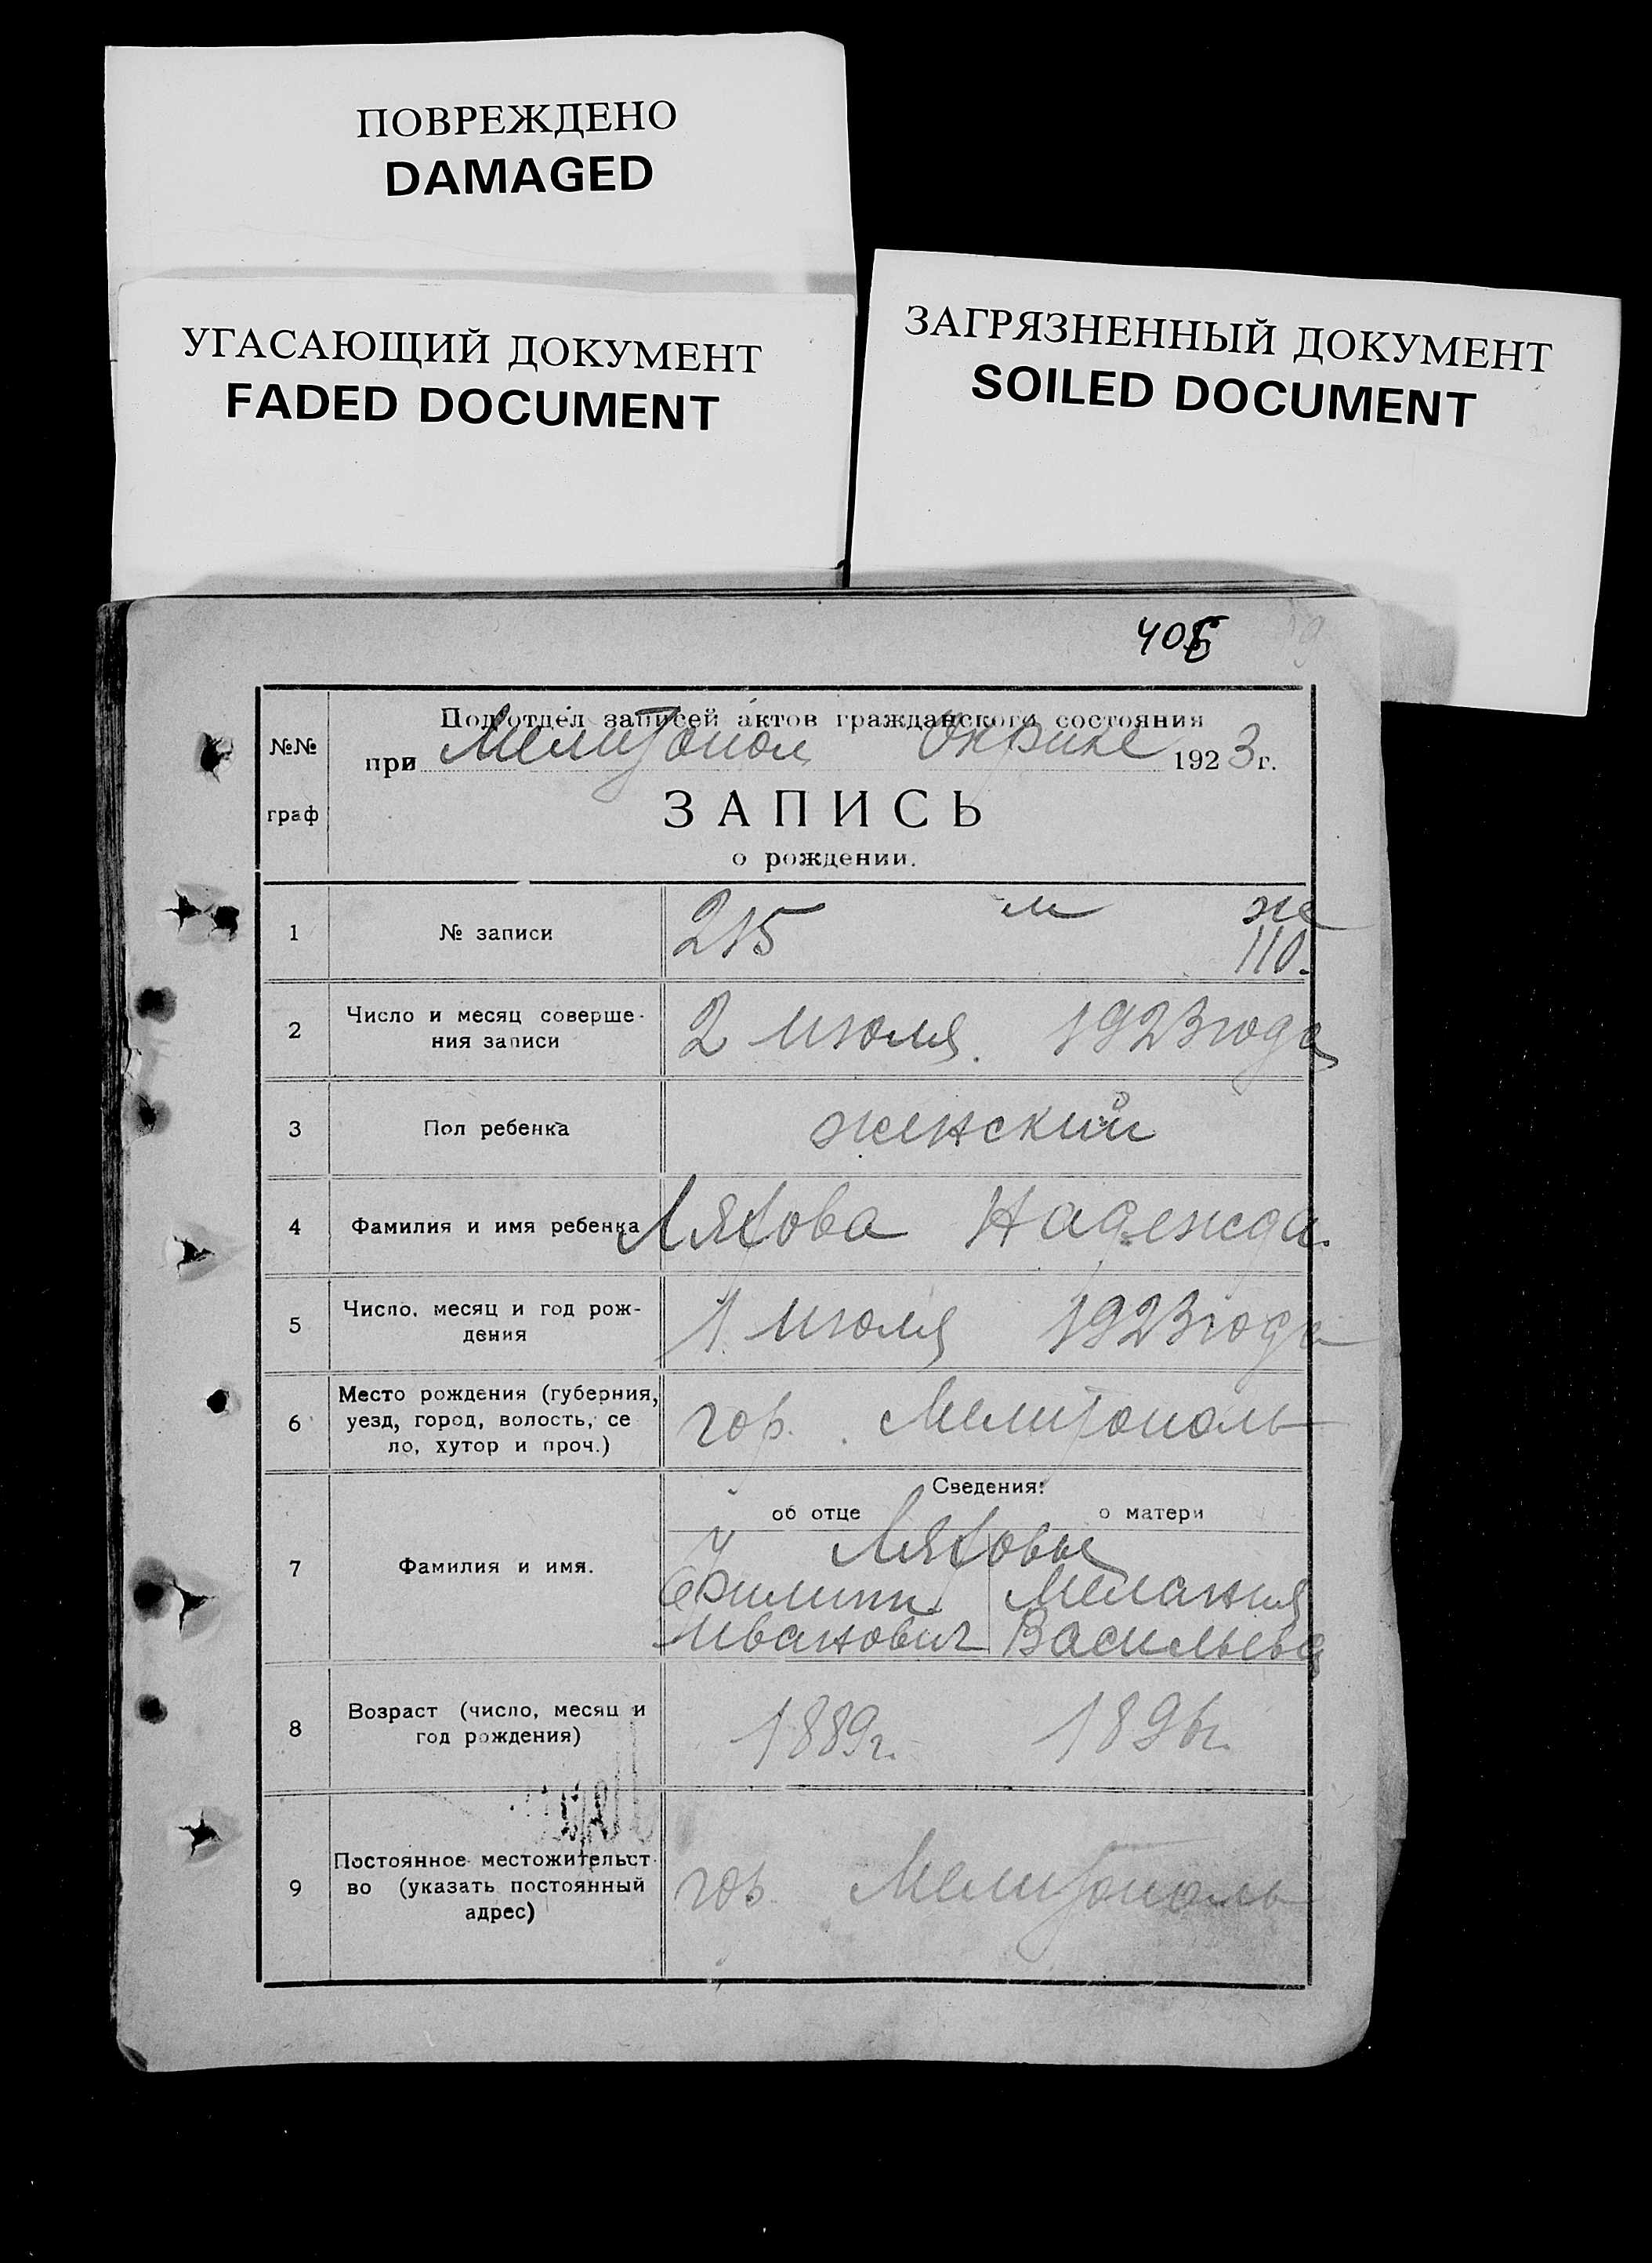 ПОВРЕЖДЕНО
DAMAGED
УГАСАЮЩИЙ ДОКУМЕНТ
FADED DOCUMENT
ЗАГРЯЗНЕННЫЙ ДОКУМЕНТ
SOILED DOCUMENT
№№
граф
Подотдел записей актов гражданского состояния
при Мелитопол Окрике 1923 г.
ЗАПИСЬ
о рождении.
1 № записи 215 м ж
110.
2 Число и месяц соверше-
ния записи 2 июля. 1923 года
3 Пол ребенка женский
4 Фамилия и имя ребенка Ляхова Надежда.
5 Число, месяц и год рож-
дения 1 июля 1923 года
6 Место рождения (губерния,
уезд, город, волость, се
ло, хутор и проч.) гор. Мелитополь
Сведения:
об отце о матери
7 Фамилия и имя. Ляховы
Филипп Мелания
Иванович Васильева
8 Возраст (число, месяц и
год рождения) 1889 г. 1896 г.
9 Постоянное местожительст-
во (указать постоянный
адрес) гор. Мелитополь